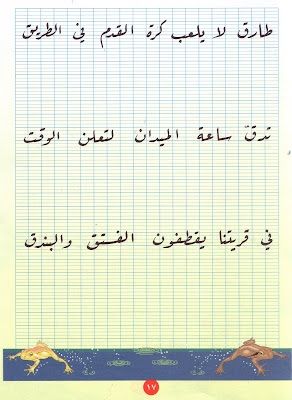 طارق لا يلعب كرة القدم في الطريق
تدقّ ساعة الميدان لتعلن الوقت
في قريتنا يقطفون الفستق والبندق
١٧